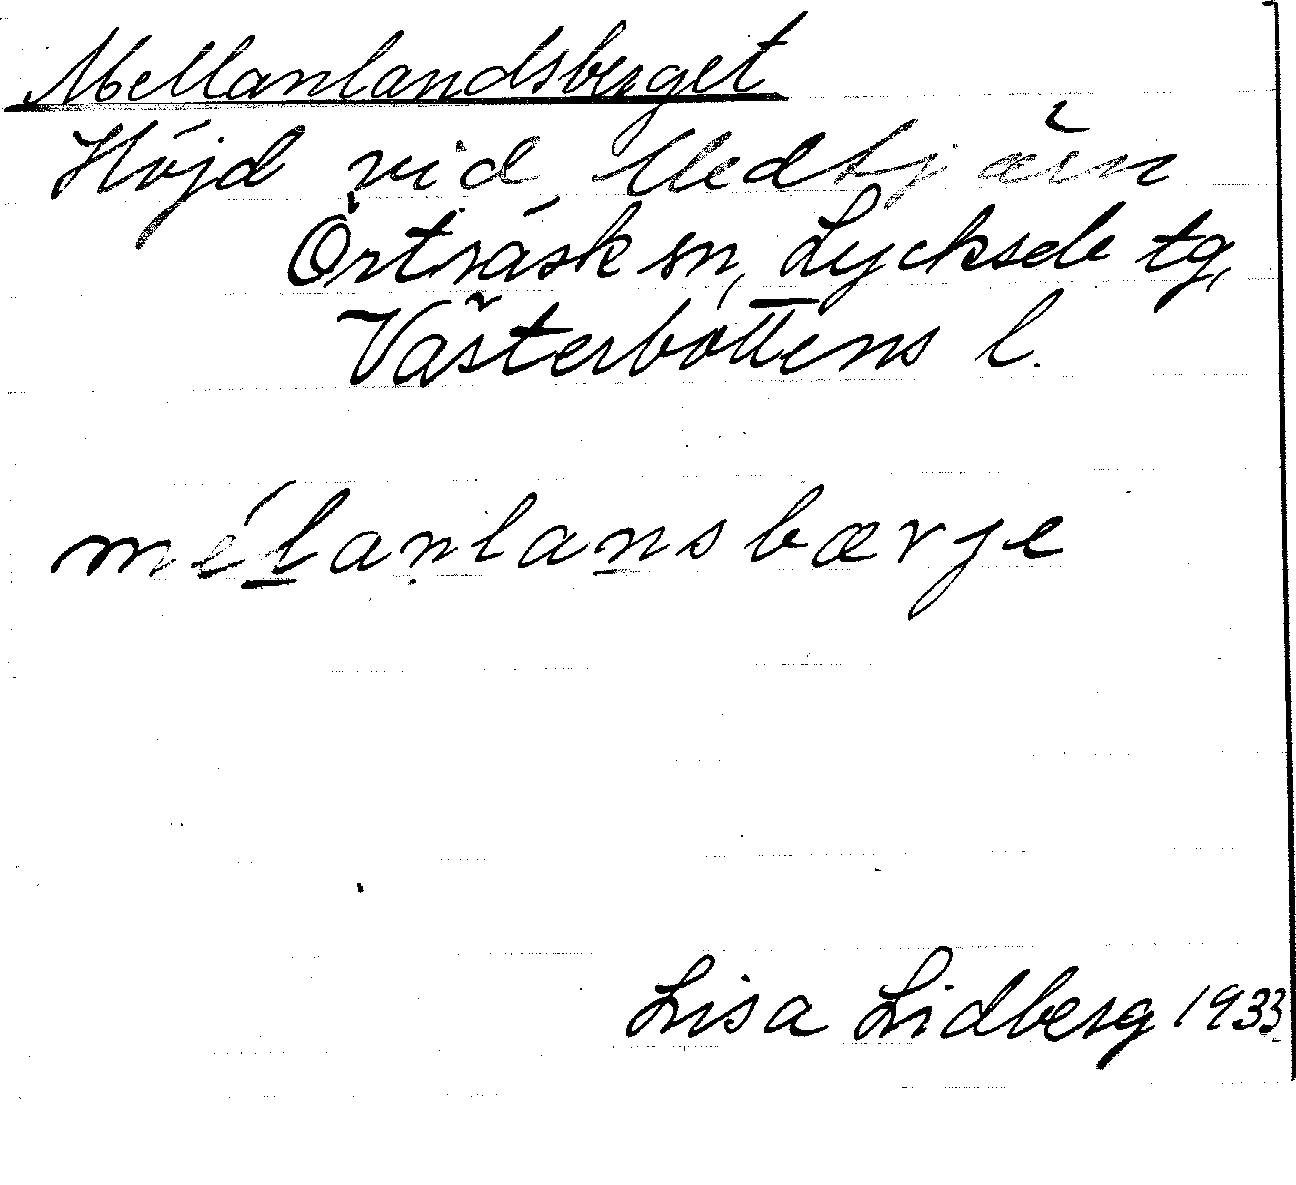 Mellanlandsberget
Höjd vid Medtjärn
Örträsk sn, Lycksele tg,
Västerbottens l.
mélanlansbærje
Lisa Lidberg 1933